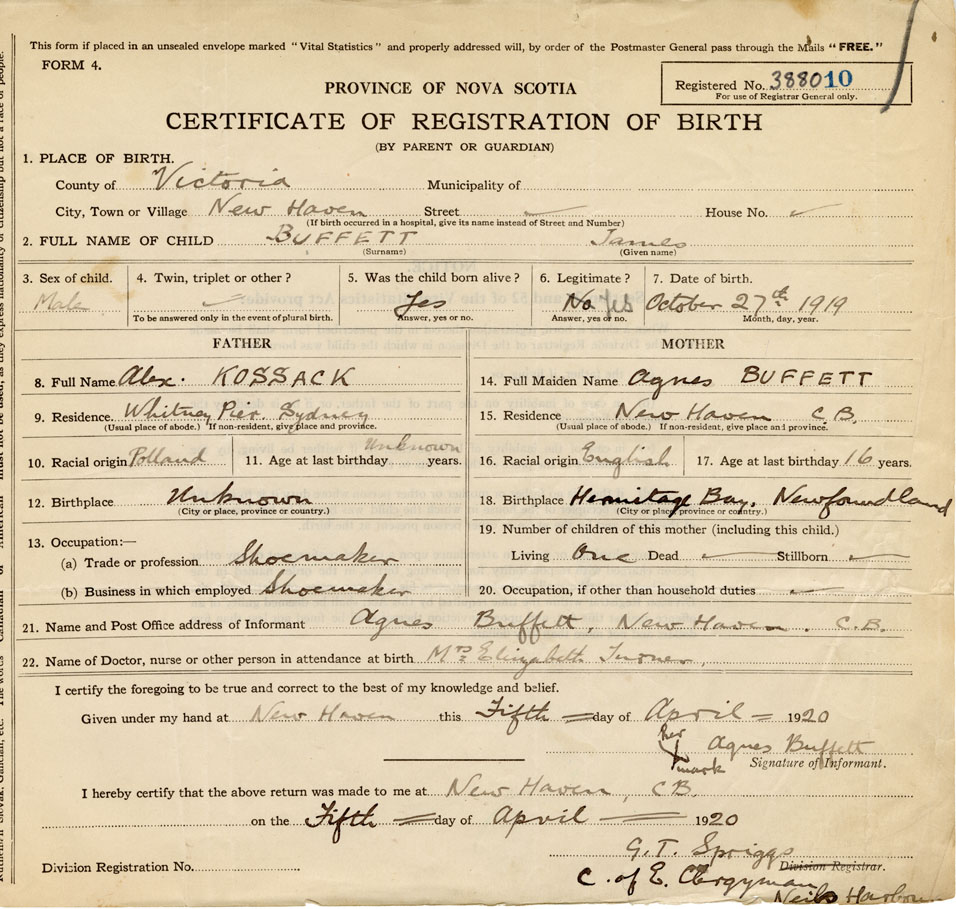 This form if placed in an unsealed envelope marked "Vital Statistics" and properly addressed will, by order of the Postmaster General pass through the Mails "FREE."
FORM 4.
Registered No. 388010
For use of Registrar General only.
PROVINCE OF NOVA SCOTIA
CERTIFICATE OF REGISTRATION OF BIRTH
(BY PARENT OR GUARDIAN)
1. PLACE OF BIRTH.
County of Victoria Municipality of
City, Town or Village New Haven Street ✓ House No. ✓
(If birth occurred in a hospital, give its name instead of Street and Number)
2. FULL NAME OF CHILD BUFFETT James
(Surname) (Given name)
3. Sex of child. 4. Twin, triplet or other? 5. Was the child born alive? 6. Legitimate? 7. Date of birth.
Male ✓ Yes No Yes October 27th 1919
To be answered only in the event of plural birth. Answer, yes or no. Answer, yes or no. Month, day, year.
FATHER MOTHER
8. Full Name Alex. KOSSACK 14. Full Maiden Name Agnes BUFFETT
9. Residence. Whitney Pier Sydney 15. Residence New Haven C.B.
(Usual place of abode.) If non-resident, give place and province. (Usual place of abode.) If non-resident, give place and province.
10. Racial origin Polland 11. Age at last birthday Unknown years. 16. Racial origin English 17. Age at last birthday 16 years.
12. Birthplace Unknown 18. Birthplace Hermitage Bay, Newfoundland
(City or place, province or country.) (City or place, province or country.)
19. Number of children of this mother (including this child.)
13. Occupation:—
(a) Trade or profession Shoemaker Living One Dead ✓ Stillborn ✓
(b) Business in which employed Shoemaker 20. Occupation, if other than household duties ✓
21. Name and Post Office address of Informant Agnes Buffett, New Haven. C.B.
22. Name of Doctor, nurse or other person in attendance at birth Mrs Elizabeth
I certify the foregoing to be true and correct to the best of my knowledge and belief.
Given under my hand at New Haven this Fifth day of April 1920
her Agnes Buffett
mark Signature of Informant.
I hereby certify that the above return was made to me at New Haven, C.B.
on the Fifth day of April 1920
G.T. Spriggs
Division Registration No. Division Registrar.
C. of E. Clergyman
Neils Harbour